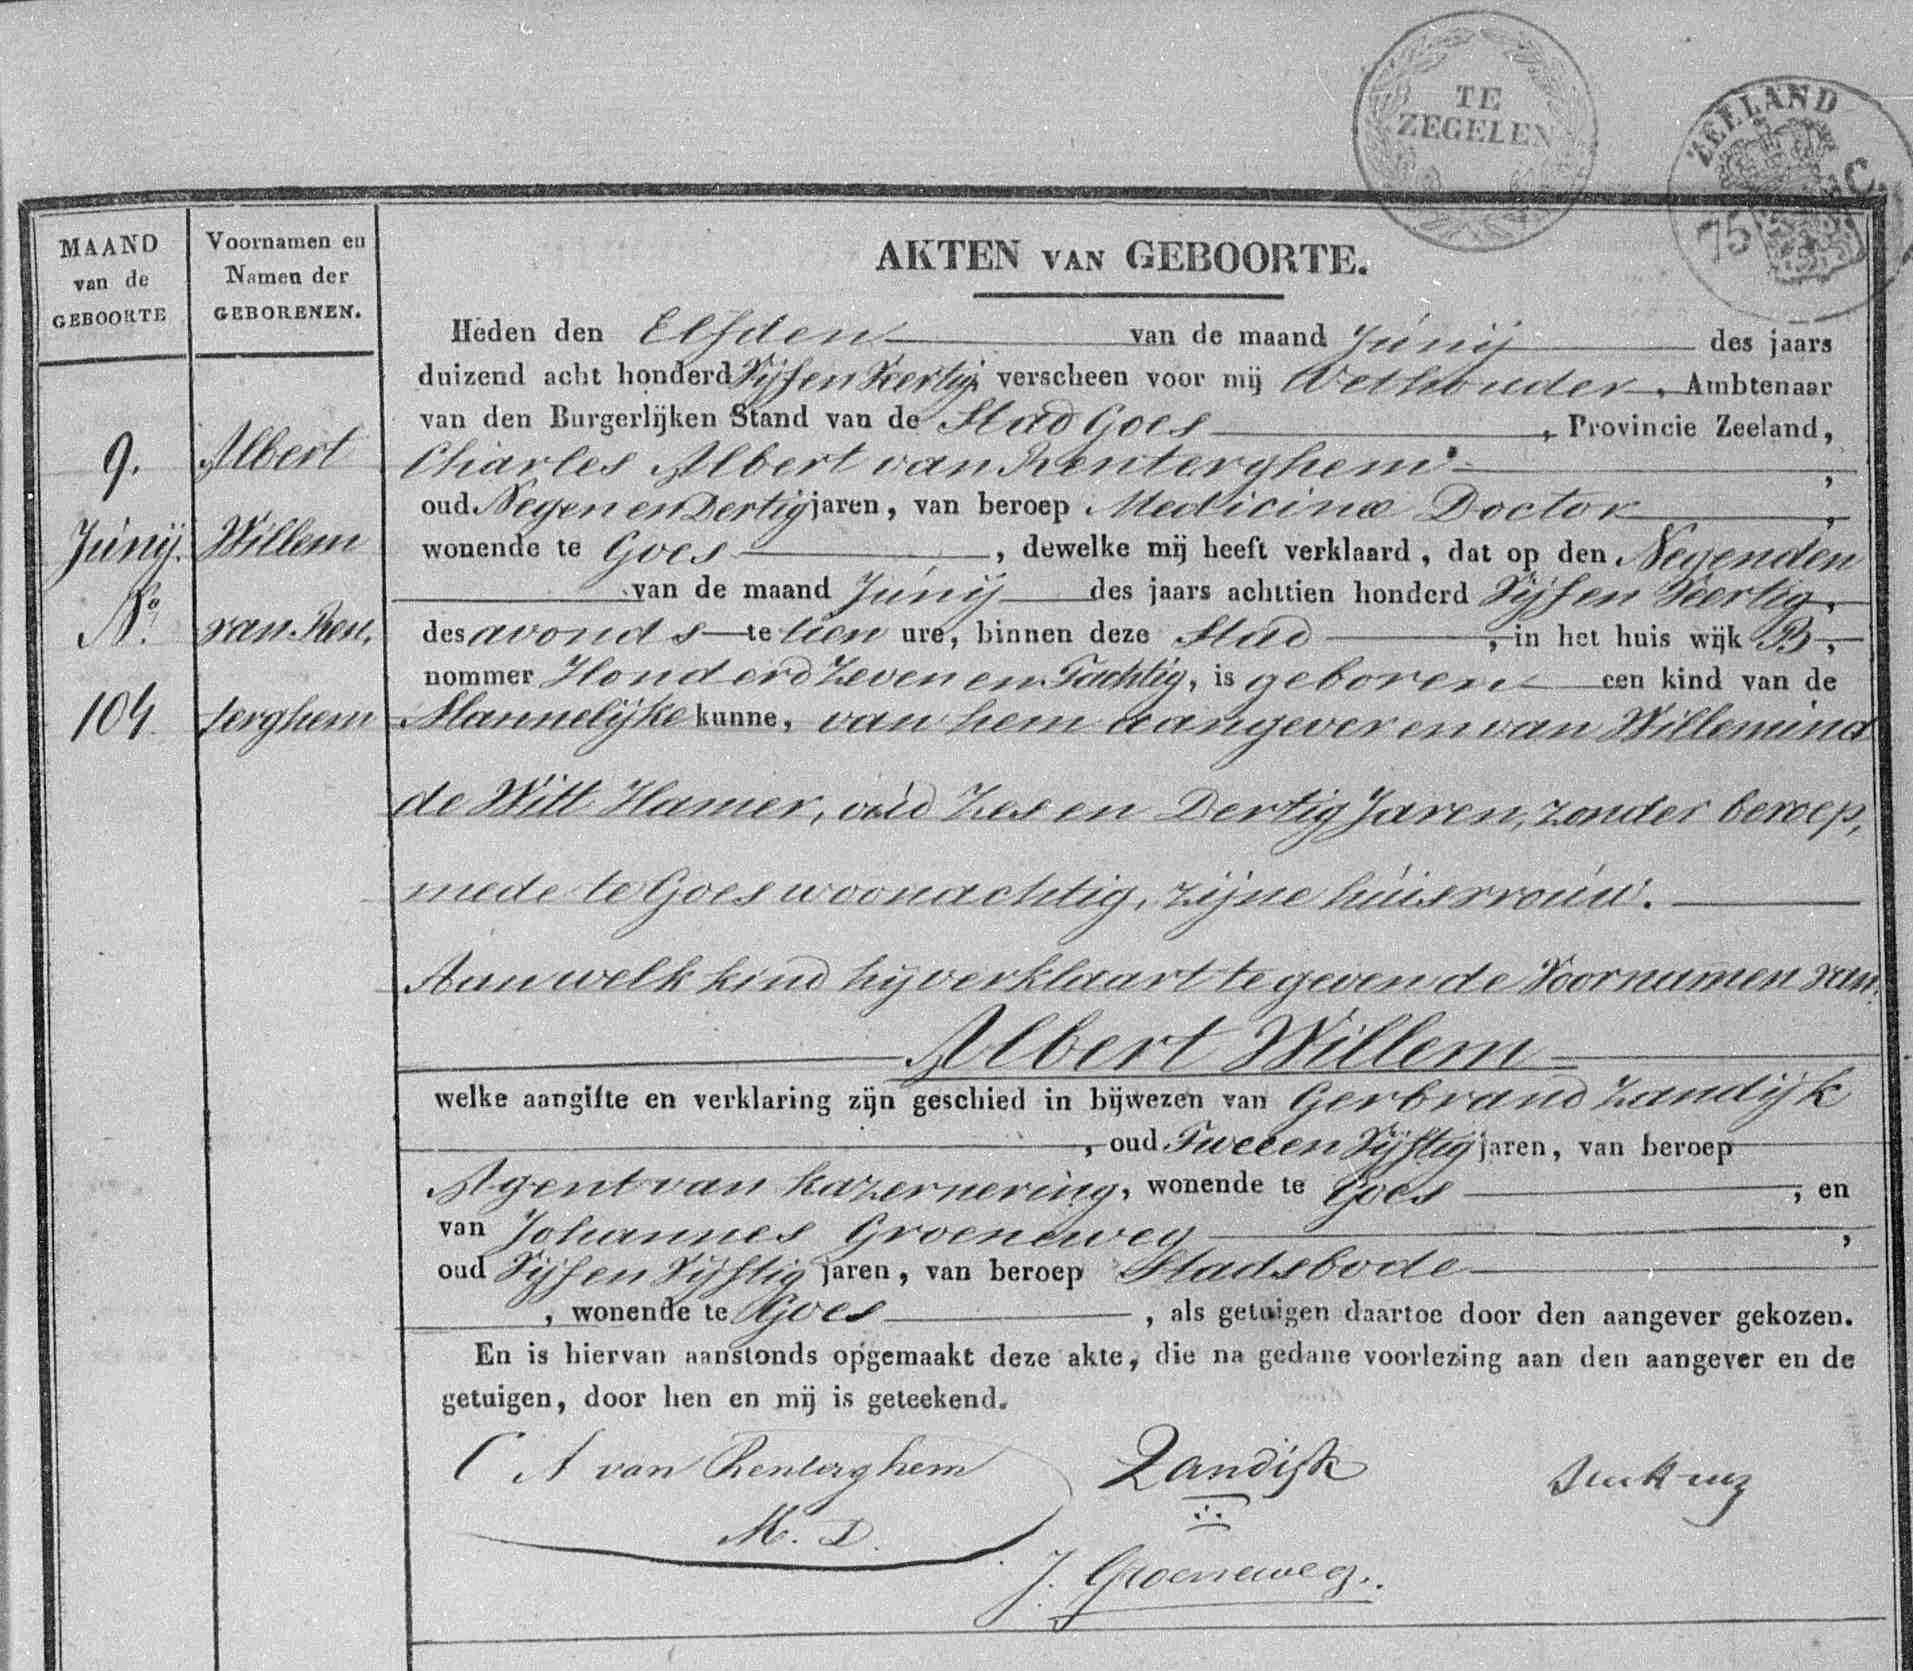 TE
ZEGELEN
ZEELAND
75 C.
MAAND
van de
GEBOORTE
Voornamen en
Namen der
GEBORENEN.
9.
Junij.
No.
104.
Albert
Willem
van Ren,
terghem
AKTEN VAN GEBOORTE.
Heden den Elfden van de maand Junij des jaars
duizend acht honderd Vijf en Veertig verscheen voor mij Wethouder, Ambtenaar
van den Burgerlijken Stand van de Stad Goes, Provincie Zeeland,
Charles Albert van Renterghem,
oud Negen en Dertig jaren, van beroep Medicinæ Doctor,
wonende te Goes, dewelke mij heeft verklaard, dat op den Negenden
van de maand Junij des jaars achttien honderd Vijf en Veertig,
des avonds te tien ure, binnen deze Stad, in het huis wijk B,
nommer Honderd Zeven en Tachtig, is geboren een kind van de
Mannelijke kunne, van hem aangever en van Willemina
de Witt Hamer, oud Zes en Dertig Jaren, zonder beroep,
mede te Goes woonachtig, zijne huisvrouw.
Aan welk kind hij verklaart te geven de Voornamen van
Albert Willem
welke aangifte en verklaring zijn geschied in bijwezen van Gerbrand Zandijk
, oud Twee en Vijftig jaren, van beroep
Agent van kazernering, wonende te Goes, en
van Johannes Groeneweg,
oud Vijf en Vijftig jaren, van beroep Stadsbode
, wonende te Goes, als getuigen daartoe door den aangever gekozen.
En is hiervan aanstonds opgemaakt deze akte, die na gedane voorlezing aan den aangever en de
getuigen, door hen en mij is geteekend.
C A van Renterghem
M. D.
Zandijk
J. Groeneweg.